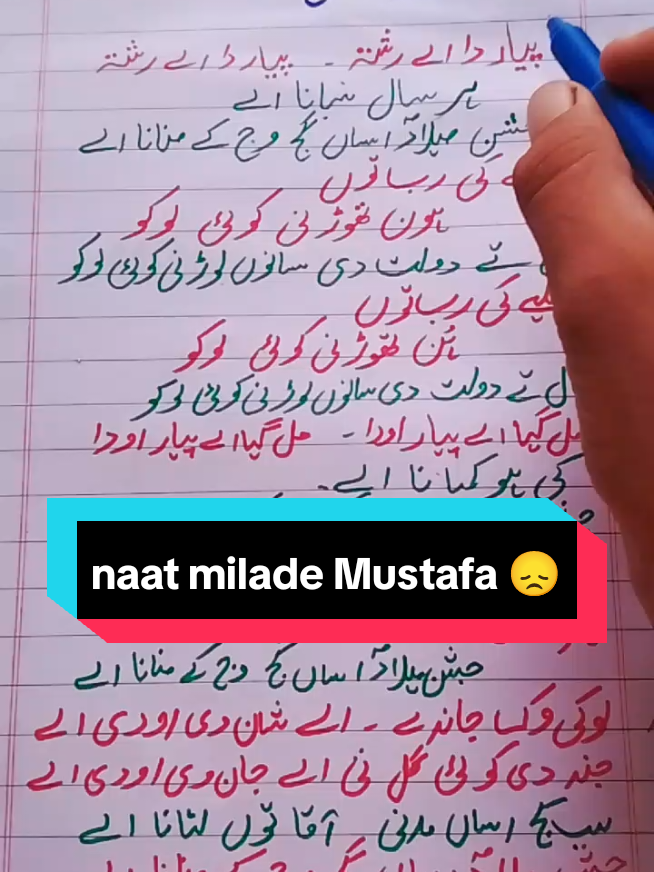 پیار دا اے رشتہ ۔ پیار دا اے رشتہ
ہر سال نبانا اے
جشن میلاد اساں گج وج کے منانا اے
کی رب توں
ہون تھوڑ نی کوئی لوکو
تے دولت دی سانوں لوڑ نی کوئی لوکو
کی رب توں
ہُن تھوڑ نی کوئی لوکو
تے دولت دی سانوں لوڑ نی کوئی لوکو
مل گیا اے پیار اودا - مل گیا اے پیار اودا
کی ہو کمانا اے
naat milade Mustafa 😞
جشن میلاد اساں گج وج کے منانا اے
لوکی وک جاندے ۔ اے شان دی اودی اے
جند دی کوئی گل نی اے جان وی اودی اے
سب کج اساں مدنی آقا توں لٹانا اے